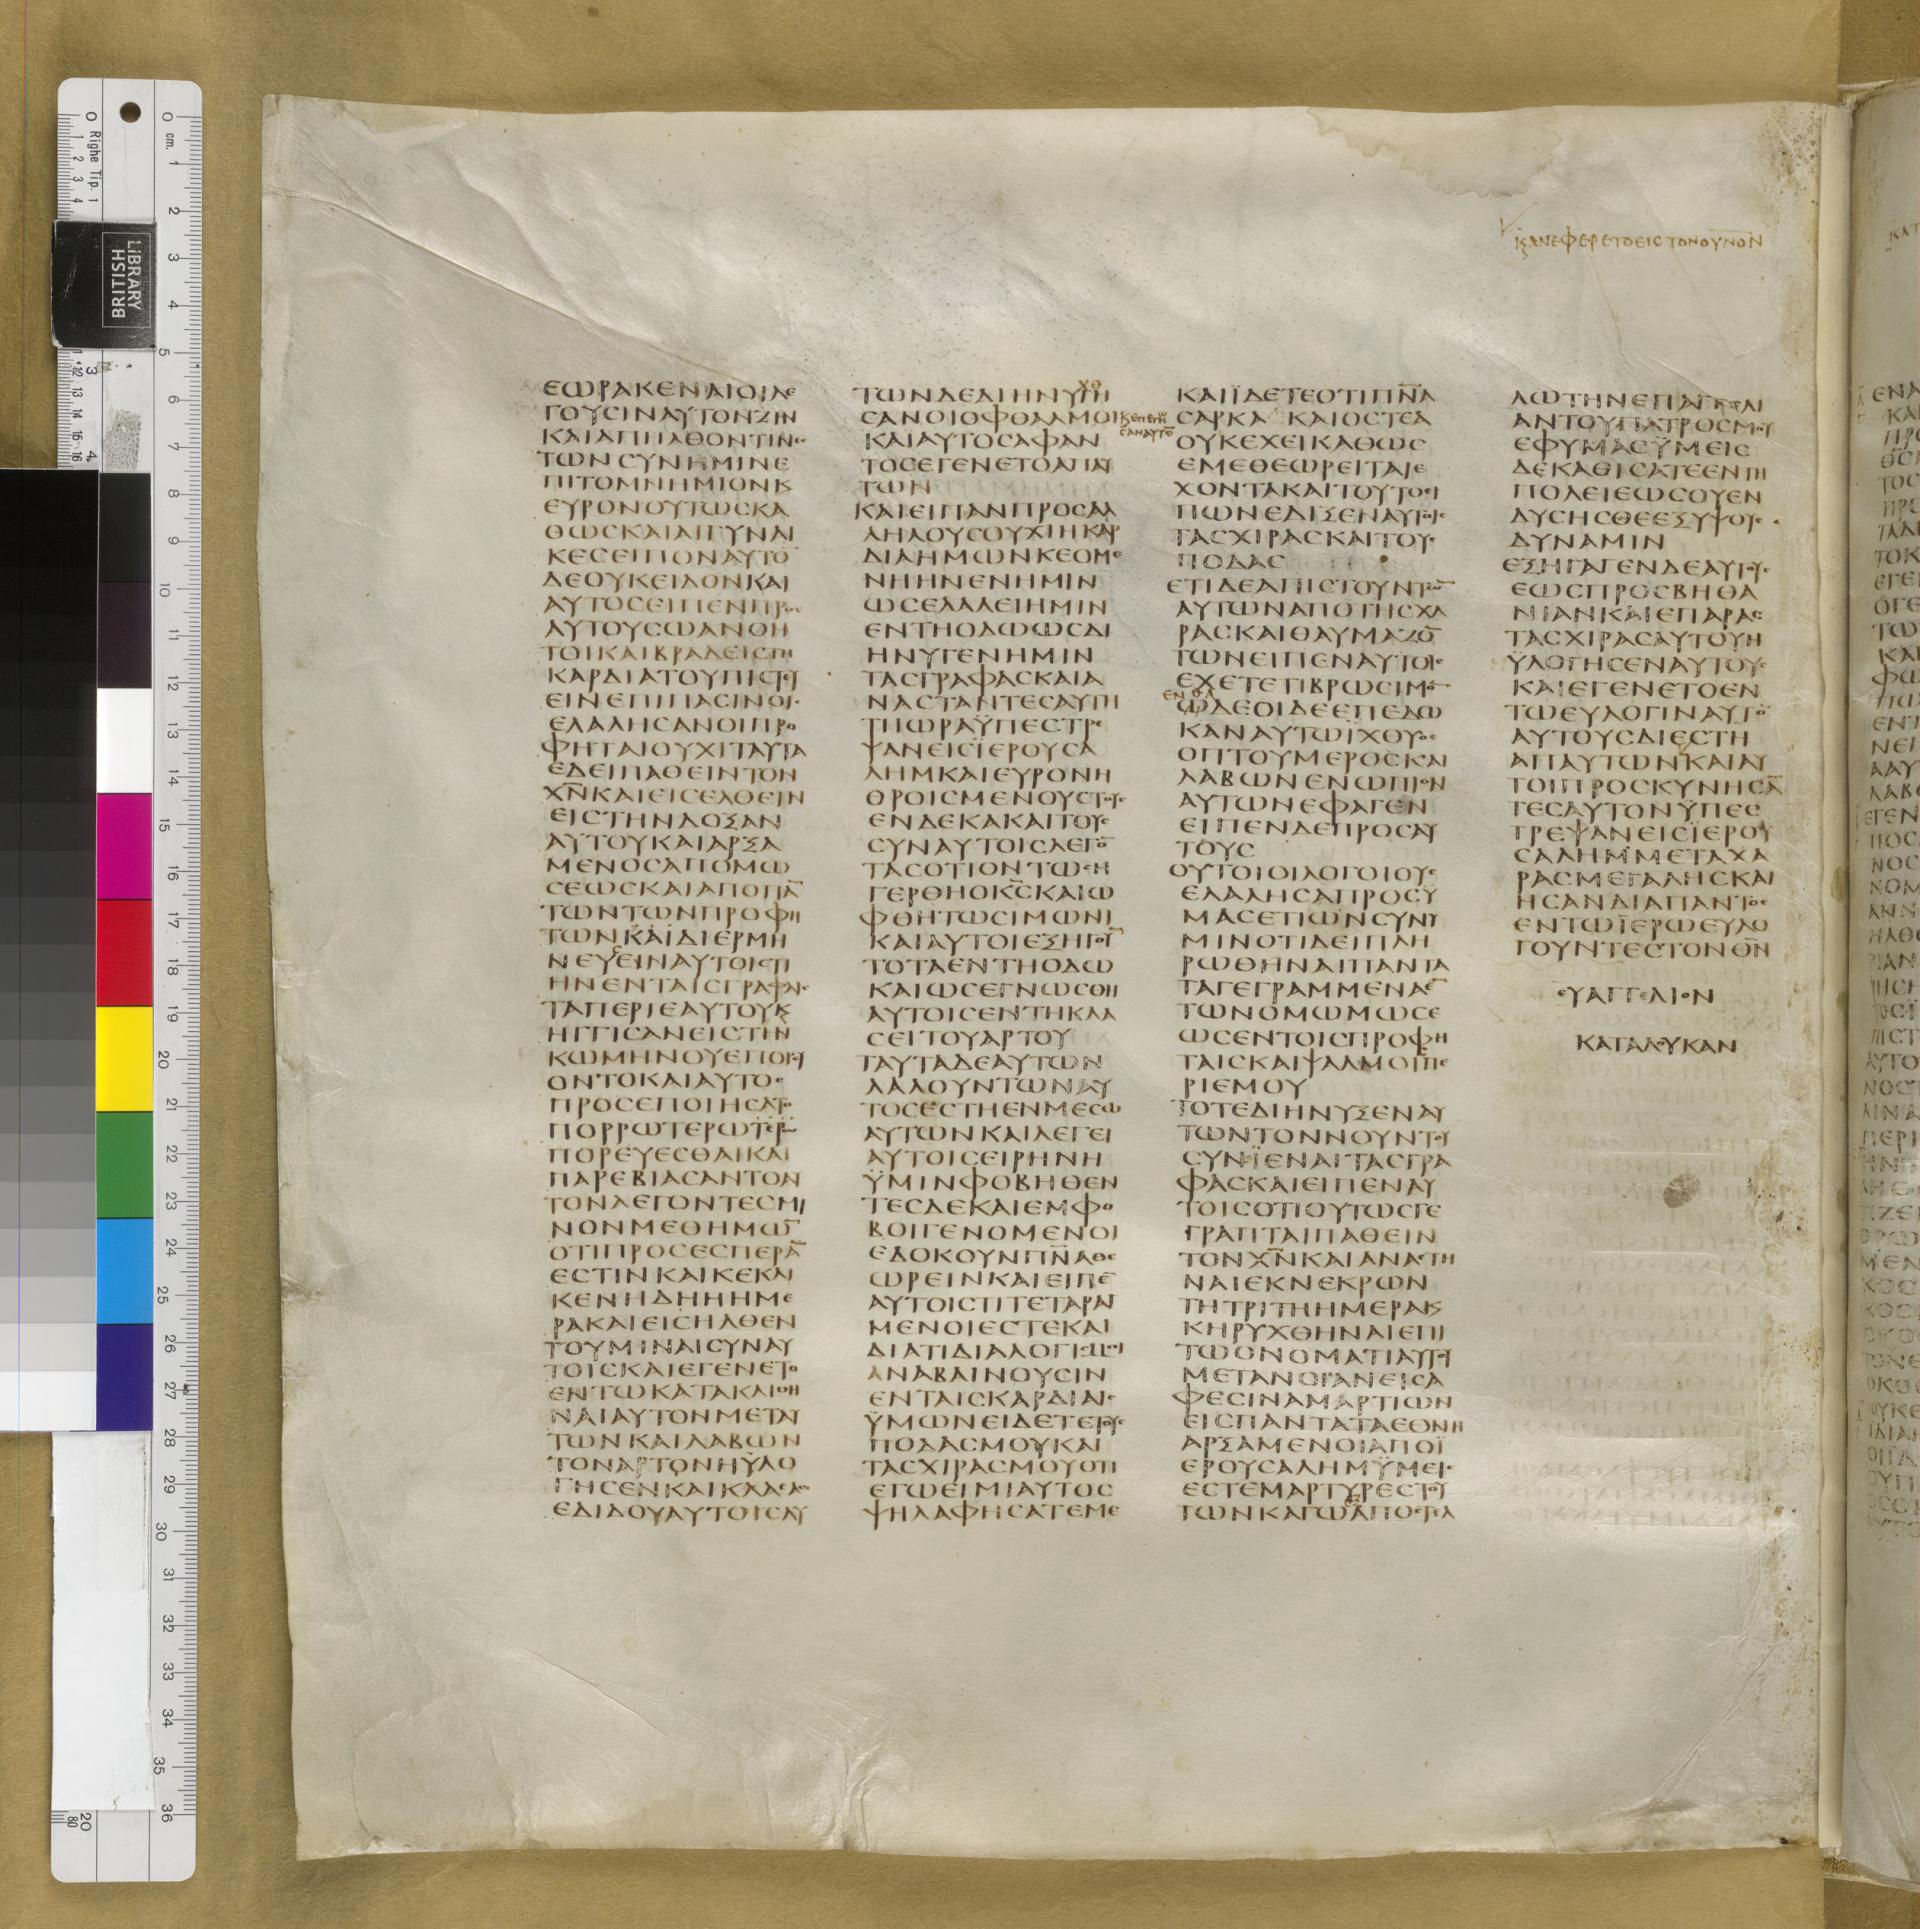 ΕΩΡΑΚΕΝΑΙΟΙΛΕ
ΓΟΥϹΙΝΑΥΤΟΝΖΗΝ
ΚΑΙΑΠΗΛΘΟΝΤΙΝΕϹ
ΤΩΝϹΥΝΗΜΙΝΕ
ΠΙΤΟΜΝΗΜΙΟΝΚ
ΕΥΡΟΝΟΥΤΩϹΚΑ
ΘΩϹΚΑΙΑΙΓΥΝΑΙ
ΚΕϹΕΙΠΟΝΑΥΤΟ
ΔΕΟΥΚΕΙΔΟΝΚΑΙ
ΑΥΤΟϹΕΙΠΕΝΠΡΟϹ
ΑΥΤΟΥϹΩΑΝΟΗ
ΤΟΙΚΑΙΒΡΑΔΕΙϹΤΗ
ΚΑΡΔΙΑΤΟΥΠΙϹΤΕΥ
ΕΙΝΕΠΙΠΑϹΙΝΟΙϹ
ΕΛΑΛΗϹΑΝΟΙΠΡΟ
ΦΗΤΑΙΟΥΧΙΤΑΥΤΑ
ΕΔΕΙΠΑΘΕΙΝΤΟΝ
ΧΝ̅ΚΑΙΕΙϹΕΛΘΕΙΝ
ΕΙϹΤΗΝΔΟΞΑΝ
ΑΥΤΟΥΚΑΙΑΡΞΑ
ΜΕΝΟϹΑΠΟΜΩ
ϹΕΩϹΚΑΙΑΠΟΠΑ̅
ΤΩΝΤΩΝΠΡΟΦΗ
ΤΩΝΚΑΙΔΙΕΡΜΗ
ΝΕΥΕΙΝΑΥΤΟΙϹΤΙ
ΗΝΕΝΤΑΙϹΓΡΑΦΑΙϹ
ΤΑΠΕΡΙΕΑΥΤΟΥΚ
ΗΓΓΙϹΑΝΕΙϹΤΗΝ
ΚΩΜΗΝΟΥΕΠΟΡΕΥ
ΟΝΤΟΚΑΙΑΥΤΟϹ
ΠΡΟϹΕΠΟΙΗϹΑΤΟ
ΠΟΡΡΩΤΕΡΩΤΕΡΩ
ΠΟΡΕΥΕϹΘΑΙΚΑΙ
ΠΑΡΕΒΙΑϹΑΝΤΟΝ
ΤΟΝΛΕΓΟΝΤΕϹΜΙ
ΝΟΝΜΕΘΗΜΩ̅
ΟΤΙΠΡΟϹΕϹΠΕΡΑ̅
ΕϹΤΙΝΚΑΙΚΕΚΛΙ
ΚΕΝΗΔΗΗΗΜΕ
ΡΑΚΑΙΕΙϹΗΛΘΕΝ
ΤΟΥΜΙΝΑΙϹΥΝΑΥ
ΤΟΙϹΚΑΙΕΓΕΝΕΤΟ
ΕΝΤΩΚΑΤΑΚΛΙΘΗ
ΝΑΙΑΥΤΟΝΜΕΤΑΥ
ΤΩΝΚΑΙΛΑΒΩΝ
ΤΟΝΑΡΤΟΝΗΫΛΟ
ΓΗϹΕΝΚΑΙΚΛΑϹΑϹ
ΕΔΙΔΟΥΑΥΤΟΙϹΑΥ
ΤΩΝΔΕΔΙΗΝΥΓΗ
ϹΑΝΟΙΟΦΘΑΛΜΟΙ
ΚΑΙΑΥΤΟϹΑΦΑΝ
ΤΟϹΕΓΕΝΕΤΟΑΠΑΥ
ΤΩΝ
ΚΑΙΕΙΠΑΝΠΡΟϹΑΛ
ΛΗΛΟΥϹΟΥΧΙΗΚΑΡ
ΔΙΑΗΜΩΝΚΕΟΜΕ
ΝΗΗΝΕΝΗΜΙΝ
ΩϹΕΛΑΛΕΙΗΜΙΝ
ΕΝΤΗΟΔΩΩϹΔΙ
ΗΝΥΓΕΝΗΜΙΝ
ΤΑϹΓΡΑΦΑϹΚΑΙΑ
ΝΑϹΤΑΝΤΕϹΑΥΤΗ
ΤΗΩΡΑΫΠΕϹΤΡΕ
ΨΑΝΕΙϹΪΕΡΟΥϹΑ
ΛΗΜΚΑΙΕΥΡΟΝΗ
ΘΡΟΙϹΜΕΝΟΥϹΤΟΥϹ
ΕΝΔΕΚΑΚΑΙΤΟΥϹ
ϹΥΝΑΥΤΟΙϹΛΕΓΟ̅
ΤΑϹΟΤΙΟΝΤΩϹΗ
ΓΕΡΘΗΟΚϹ̅ΚΑΙΩ
ΦΘΗΤΩϹΙΜΩΝΙ
ΚΑΙΑΥΤΟΙΕΞΗΓΟΥ̅
ΤΟΤΑΕΝΤΗΟΔΩ
ΚΑΙΩϹΕΓΝΩϹΘΗ
ΑΥΤΟΙϹΕΝΤΗΚΛΑ
ϹΕΙΤΟΥΑΡΤΟΥ
ΤΑΥΤΑΔΕΑΥΤΩΝ
ΛΑΛΟΥΝΤΩΝΑΥ
ΤΟϹΕϹΤΗΕΝΜΕϹΩ
ΑΥΤΩΝΚΑΙΛΕΓΕΙ
ΑΥΤΟΙϹΕΙΡΗΝΗ
ΫΜΙΝΦΟΒΗΘΕΝ
ΤΕϹΔΕΚΑΙΕΜΦΟ
ΒΟΙΓΕΝΟΜΕΝΟΙ
ΕΔΟΚΟΥΝΠΝ̅ΑΘΕ
ΩΡΕΙΝΚΑΙΕΙΠΕ̅
ΑΥΤΟΙϹΤΙΤΕΤΑΡΑΓ
ΜΕΝΟΙΕϹΤΕΚΑΙ
ΔΙΑΤΙΔΙΑΛΟΓΙϹΜΟΙ
ΑΝΑΒΑΙΝΟΥϹΙΝ
ΕΝΤΑΙϹΚΑΡΔΙΑΙϹ
ΫΜΩΝΕΙΔΕΤΕΤΟΥϹ
ΠΟΔΑϹΜΟΥΚΑΙ
ΤΑϹΧΙΡΑϹΜΟΥΟΤΙ
ΕΓΩΕΙΜΙΑΥΤΟϹ
ΨΗΛΑΦΗϹΑΤΕΜΕ
ΚΑΙΪΔΕΤΕΟΤΙΠΝ̅Α
ϹΑΡΚΑ ΚΑΙΟϹΤΕΑ
ΟΥΚΕΧΕΙΚΑΘΩϹ
ΕΜΕΘΕΩΡΕΙΤΑΙΕ
ΧΟΝΤΑΚΑΙΤΟΥΤΟΕΙ
ΠΩΝΕΔΙΞΕΝΑΥΤΟΙϹ
ΤΑϹΧΙΡΑϹΚΑΙΤΟΥϹ
ΠΟΔΑϹ
ΕΤΙΔΕΑΠΙϹΤΟΥΝΤΩ̅
ΑΥΤΩΝΑΠΟΤΗϹΧΑ
ΡΑϹΚΑΙΘΑΥΜΑΖΟ̅
ΤΩΝΕΙΠΕΝΑΥΤΟΙϹ
ΕΧΕΤΕΤΙΒΡΩϹΙΜΟ̅
ΕΝΘΑ
ΩΔΕΟΙΔΕΕΠΕΔΩ
ΚΑΝΑΥΤΩΪΧΘΥΟϹ
ΟΠΤΟΥΜΕΡΟϹΚΑΙ
ΛΑΒΩΝΕΝΩΠΙΟΝ
ΑΥΤΩΝΕΦΑΓΕΝ
ΕΙΠΕΝΔΕΠΡΟϹΑΥ
ΤΟΥϹ
ΟΥΤΟΙΟΙΛΟΓΟΙΟΥϹ
ΕΛΑΛΗϹΑΠΡΟϹΫ
ΜΑϹΕΤΙΩΝϹΥΝΫ
ΜΙΝΟΤΙΔΕΙΠΛΗ
ΡΩΘΗΝΑΙΠΑΝΤΑ
ΤΑΓΕΓΡΑΜΜΕΝΑΕ̅
ΤΩΝΟΜΩΜΩϹΕ
ΩϹΕΝΤΟΙϹΠΡΟΦΗ
ΤΑΙϹΚΑΙΨΑΛΜΟΙϹΠΕ
ΡΙΕΜΟΥ
ΤΟΤΕΔΙΗΝΥΞΕΝΑΥ
ΤΩΝΤΟΝΝΟΥΝΤΟΥ
ϹΥΝΪΕΝΑΙΤΑϹΓΡΑ
ΦΑϹΚΑΙΕΙΠΕΝΑΥ
ΤΟΙϹΟΤΙΟΥΤΩϹΓΕ
ΓΡΑΠΤΑΙΠΑΘΕΙΝ
ΤΟΝΧΝ̅ΚΑΙΑΝΑϹΤΗ
ΝΑΙΕΚΝΕΚΡΩΝ
ΤΗΤΡΙΤΗΗΜΕΡΑΚ
ΚΗΡΥΧΘΗΝΑΙΕΠΙ
ΤΩΟΝΟΜΑΤΙΑΥΤΟΥ
ΜΕΤΑΝΟΙΑΝΕΙϹΑ
ΦΕϹΙΝΑΜΑΡΤΙΩΝ
ΕΙϹΠΑΝΤΑΤΑΕΘΝΗ
ΑΡΞΑΜΕΝΟΙΑΠΟΪ
ΕΡΟΥϹΑΛΗΜΫΜΕΙϹ
ΕϹΤΕΜΑΡΤΥΡΕϹΤΟΥ
ΤΩΝΚΑΓΩΑΠΟϹΤΕΛ
ΚΑΝΕΦΕΡΕΤΟΕΙϹΤΟΝΟΥΝΟΝ
ΛΩΤΗΝΕΠΑΓΓΕΛΙ
ΑΝΤΟΥΠΑΤΡΟϹΜΟΥ
ΕΦΥΜΑϹΫΜΕΙϹ
ΔΕΚΑΘΙϹΑΤΕΕΝΤΗ
ΠΟΛΕΙΕΩϹΟΥΕΝ
ΔΥϹΗϹΘΕΕΞΥΨΟΥϹ
ΔΥΝΑΜΙΝ
ΕΞΗΓΑΓΕΝΔΕΑΥΤΟΥϹ
ΕΩϹΠΡΟϹΒΗΘΑ
ΝΙΑΝΚΑΙΕΠΑΡΑϹ
ΤΑϹΧΙΡΑϹΑΥΤΟΥΗ
ΫΛΟΓΗϹΕΝΑΥΤΟΥϹ
ΚΑΙΕΓΕΝΕΤΟΕΝ
ΤΩΕΥΛΟΓΙΝΑΥΤΟ̅
ΑΥΤΟΥϹΔΙΕϹΤΗ
ΑΠΑΥΤΩΝΚΑΙΑΥ
ΤΟΙΠΡΟϹΚΥΝΗϹΑ̅
ΤΕϹΑΥΤΟΝΫΠΕϹ
ΤΡΕΨΑΝΕΙϹΪΕΡΟΥ
ϹΑΛΗΜΜΕΤΑΧΑ
ΡΑϹΜΕΓΑΛΗϹΚΑΙ
ΗϹΑΝΔΙΑΠΑΝΤΟϹ
ΕΝΤΩΪΕΡΩΕΥΛΟ
ΓΟΥΝΤΕϹΤΟΝΘ̅Ν̅
ΕΥΑΓΓΕΛΙΟΝ
ΚΑΤΑΛΟΥΚΑΝ
BRITISH
LIBRARY